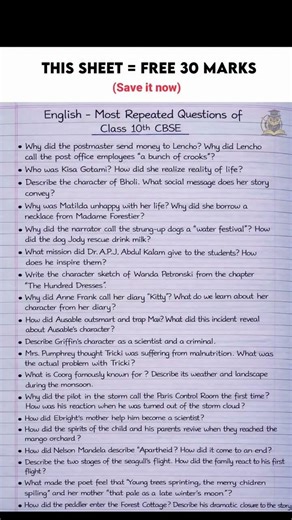 THIS SHEET = FREE 30 MARKS
(Save it now)
English - Most Repeated Questions of
Class 10th CBSE
• Why did the postmaster send money to Lencho? Why did Lencho
call the post office employees "a bunch of crooks"?
• Who was Kisa Gotami? How did she realize reality of life?
• Describe the character of Bholi. What social message does her story
convey?
• Why was Matilda unhappy with her life? Why did she borrow a
necklace from Madame Forestier?
• Why did the narrator call the strung-up dogs a "water festival"? How
did the dog Jody rescue drink milk?
• What mission did Dr. A.P.J. Abdul Kalam give to the students? How
does he inspire them?
• Write the character sketch of Wanda Petronski from the chapter
"The Hundred Dresses".
• Why did Anne Frank call her diary "Kitty"? What do we learn about her
character from her diary?
• How did Ausable outsmart and trap Max? What did this incident reveal
about Ausable's character?
• Describe Griffin's character as a scientist and a criminal.
• Mrs. Pumphrey thought Tricki was suffering from malnutrition. What was
the actual problem with Tricki?
• What is Coorg famously known for? Describe its weather and landscape
during the monsoon.
• Why did the pilot in the storm call the Paris Control Room the first time?
How was his reaction when he was turned out of the storm cloud?
• How did Ebright's mother help him become a scientist?
• How did the spirits of the child and his parents revise when they reached the
mango orchard?
• How did Nelson Mandela describe "Apartheid? How did it come to an end?
• Describe the two stages of the seagull's flight. How did the family react to his first
flight?
• What made the poet feel that "Young trees sprinting, the merry chidren
spilling" and her mother "that pale as a late winter's moon"?
• How did the peddler enter the Forest Cottage? Describe his dramatic closure to the story.